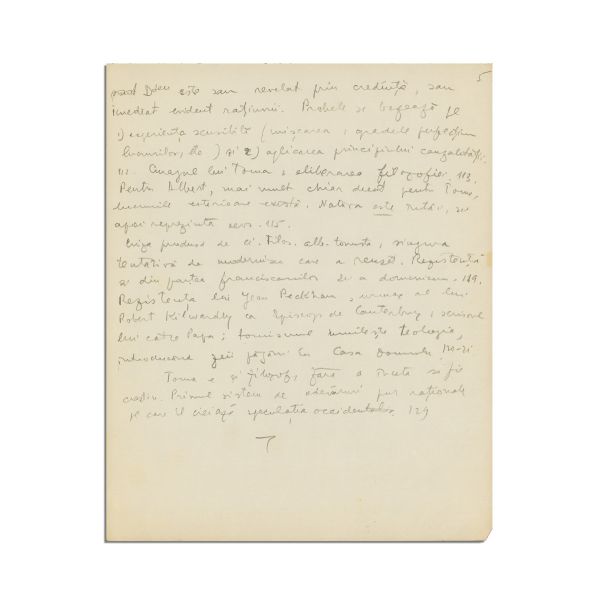 5
Dieu este sau revelat prin credință, sau
imediat evident rațiunii. Probele se bazează pe
1) experiența sensibilă (mișcarea, gradele
lucrurilor, etc) și 2) aplicarea principiului cauzalității.
111. Curajul lui Toma: eliberarea filozofiei. 113.
Pentru Albert, mai mult chiar decât pentru Toma,
lucrurile exterioare există. Natura este întâi, și
apoi reprezintă 115.
Criza produsă de filos. alb-tomistă, singura
tentativă de modernism care a reușit. Rezistență
și din partea franciscanilor și a dominican. 119.
Rezistența lui Jean Peckham, urmaș al lui
Robert Kilwardby ca Episcop de Canterbury, scrisoarea
lui către Papa: tomismul umilește teologia,
introducând zeii păgâni în Casa Domnului 120-21
Toma e și filozof, fără a înceta să fie
creștin. Primul sistem de adevăruri pur raționale
pe care îl creiază speculația occidentală. 129